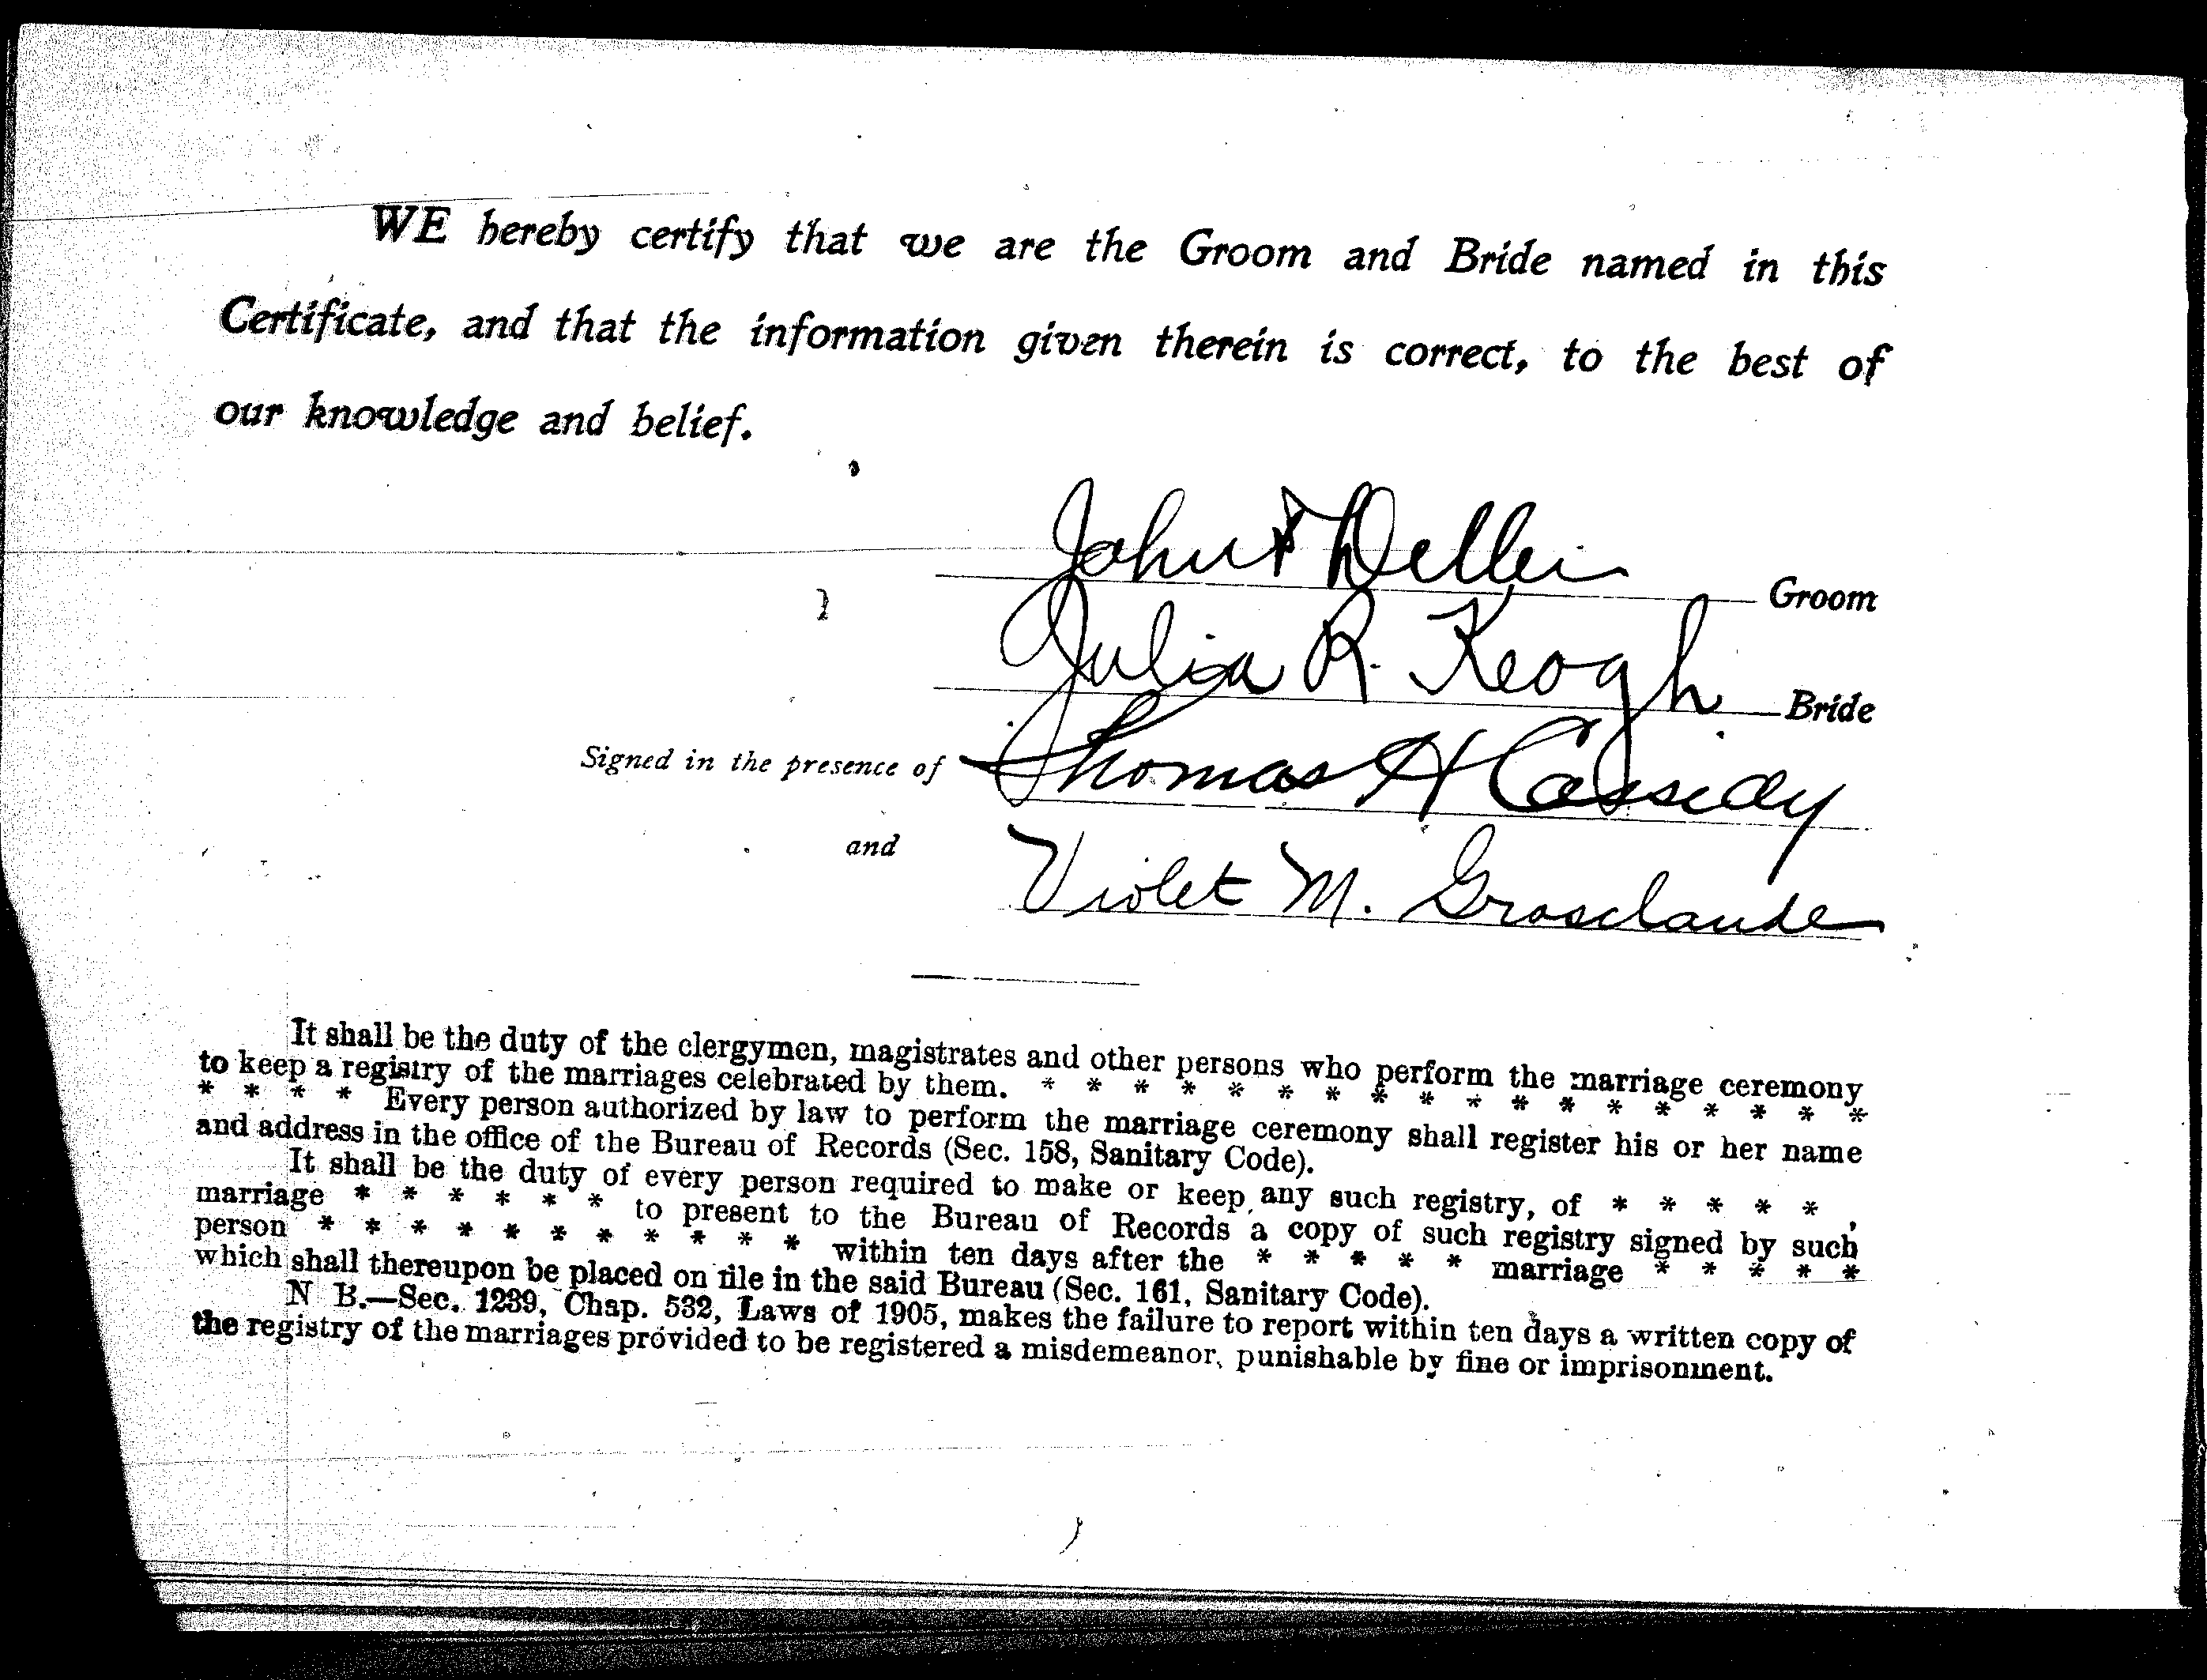 WE hereby certify that we are the Groom and Bride named in this
Certificate, and that the information given therein is correct, to the best of
our knowledge and belief.
John F Dellei
Groom
Julia R. Keogh
Bride
Signed in the presence of Thomas H Cassidy
and Violet M. Grosclaude
It shall be the duty of the clergymen, magistrates and other persons who perform the marriage ceremony
to keep a registry of the marriages celebrated by them. * * * * * * * * * * * * * * * * * *
* * * * Every person authorized by law to perform the marriage ceremony shall register his or her name
and address in the office of the Bureau of Records (Sec. 158, Sanitary Code).
It shall be the duty of every person required to make or keep any such registry, of * * * * * ,
marriage * * * * * * to present to the Bureau of Records a copy of such registry signed by such
person * * * * * * * * * * * within ten days after the * * * * * marriage * * * * *
which shall thereupon be placed on file in the said Bureau (Sec. 161, Sanitary Code).
N B.—Sec. 1239, Chap. 532, Laws of 1905, makes the failure to report within ten days a written copy of
the registry of the marriages provided to be registered a misdemeanor, punishable by fine or imprisonment.